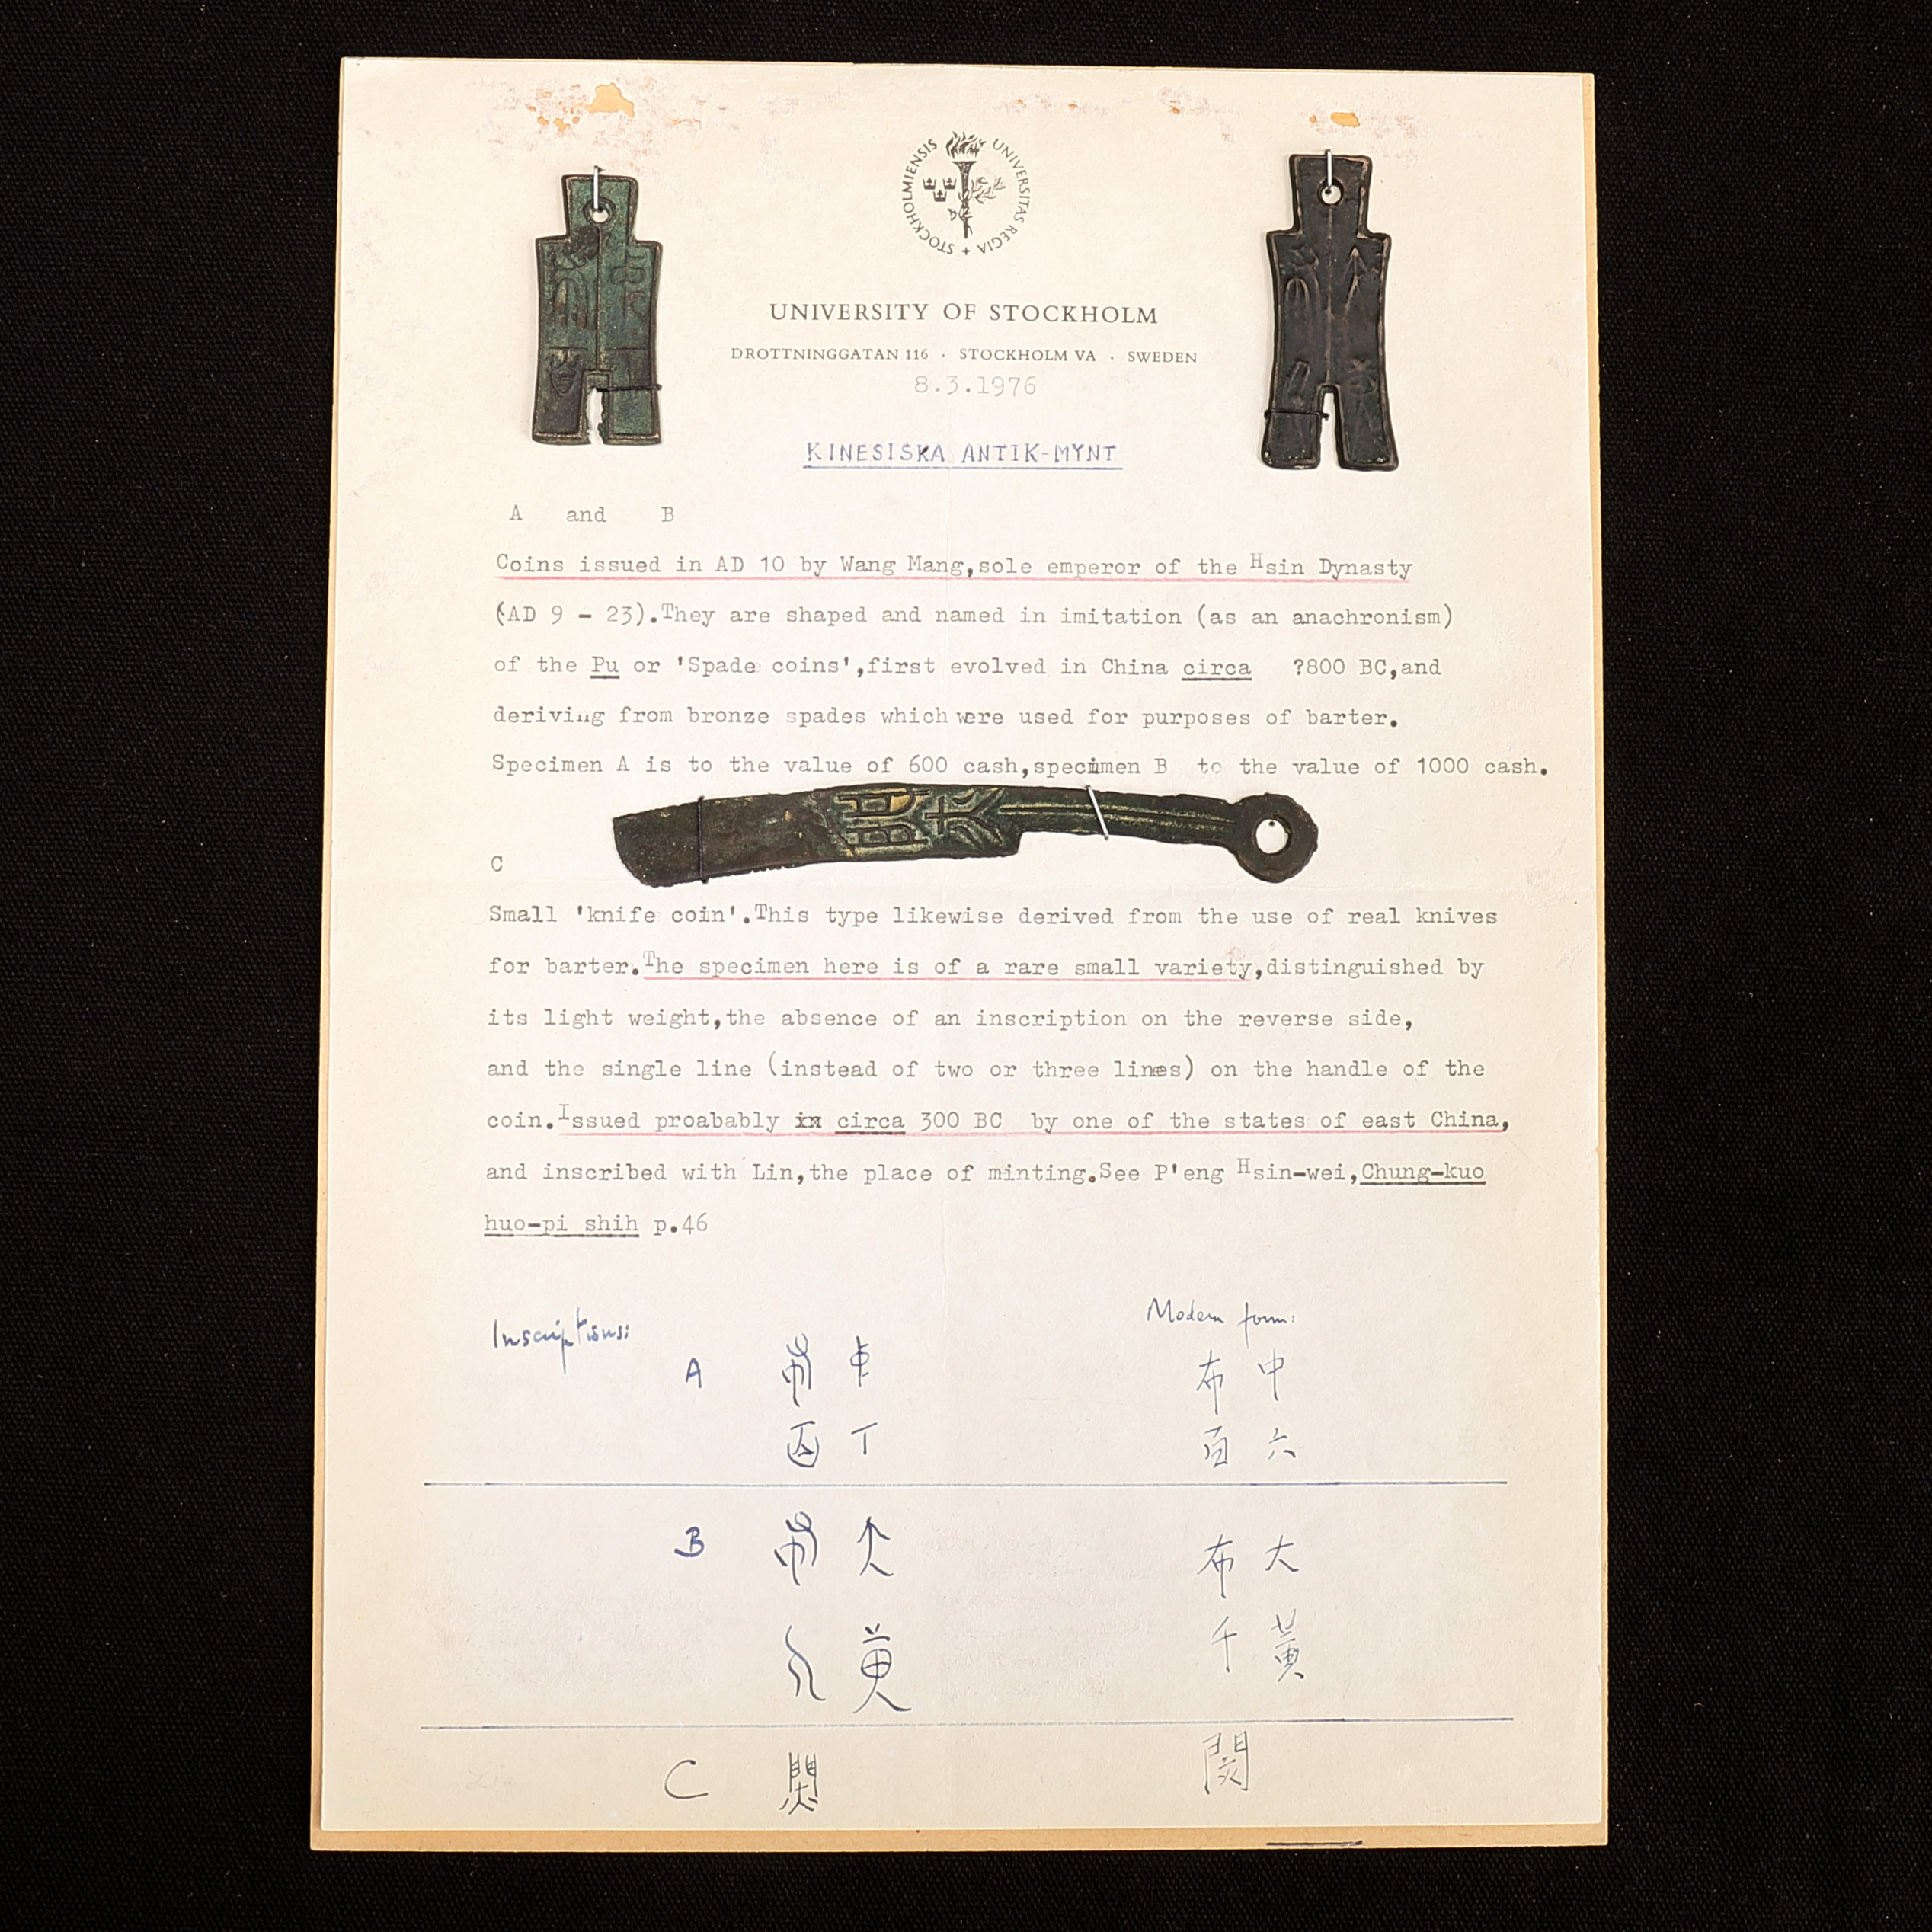 STOCKHOLMIENSIS UNIVERSITAS REGIA +
UNIVERSITY OF STOCKHOLM
DROTTNINGGATAN 116 · STOCKHOLM VA · SWEDEN
8.3.1976
KINESISKA ANTIK-MYNT
A and B
Coins issued in AD 10 by Wang Mang,sole emperor of the Hsin Dynasty
(AD 9 - 23).They are shaped and named in imitation (as an anachronism)
of the Pu or 'Spade coins',first evolved in China circa ?800 BC,and
deriving from bronze spades which were used for purposes of barter.
Specimen A is to the value of 600 cash,specimen B to the value of 1000 cash.
C
Small 'knife coin'.This type likewise derived from the use of real knives
for barter.The specimen here is of a rare small variety,distinguished by
its light weight,the absence of an inscription on the reverse side,
and the single line (instead of two or three lines) on the handle of the
coin.Issued proabably circa 300 BC by one of the states of east China,
and inscribed with Lin,the place of minting.See P'eng Hsin-wei,Chung-kuo
huo-pi shih p.46
Inscriptions: Modern form:
A 布 中
百 六
B 布 大
千 黃
C 閔